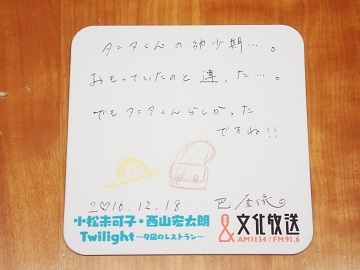 タニタくんの幼少期…。
おもっていたのと違った…。
でもタニタくんらしかった
ですね!!
2016.12.18
小松未可子・西山宏太朗
Twilight
~夕凪のレストラン~
& 文化放送
AM1134/FM91.6